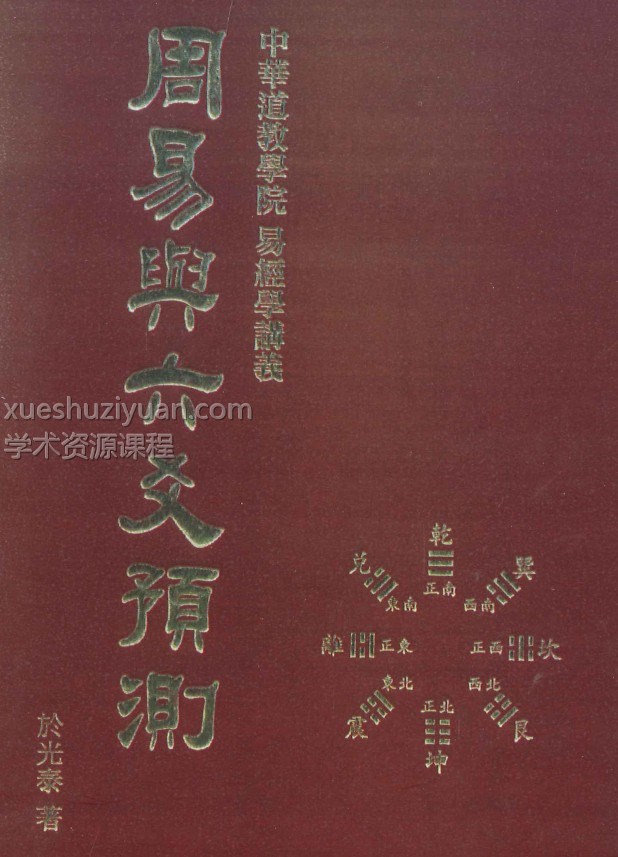 中華道教學院 易經學講義
周易與六爻預測
於光泰 著
xueshuziyuan.com
学术资源课程
乾
正南
兌
東南
巽
西南
離
正東
坎
正西
震
東北
艮
西北
坤
正北